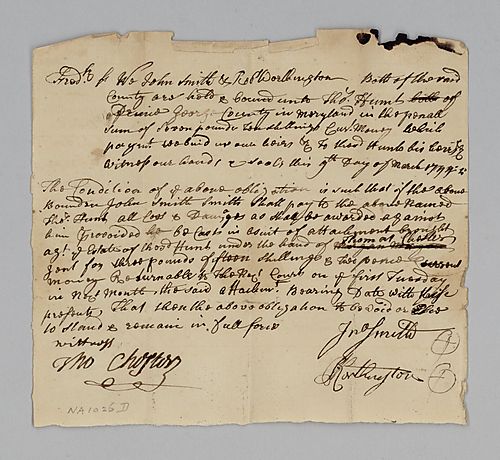 Fredk ss We John Smith & Robt Worthington Both of the said
County are held & bound unto Tho. Hunt of
Prince George County in Maryland in the penall
Sum of Seven pounds Ten shillings Curt Money which
paymt we bind us our heirs & to the sd Hunt his heirs &
Witness our hands & seals this 9th Day of March
The Condition of ye above obligation is such that if the above
Bounden John Smith Smith Shall pay to the above Named
Tho. Hunt all Cost & Damages as shall be awarded against
him Provided he be Casts in a suit of attachment brought
agt ye Estate of the sd Hunt under the hand of Thomas Chester
gent for three pounds fifteen shillings & ten pence Current
money Returnable to the Court on ye first Tuesday
in next Month the said attachmt Bearing Date with these
presents That then the above obligation to be void or Else
to Stand & remain in full force
witness Jno Smith
Tho Chester
Worthington
NA1026 D